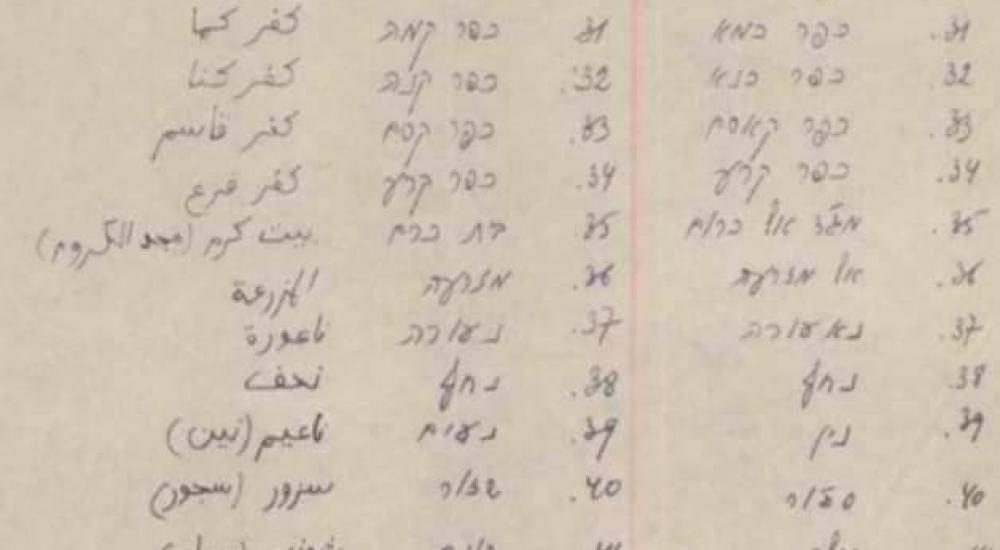 31. כפר כמא 31 כפר קמה كفر كما
32. כפר כנא 32. כפר קנה كفر كنا
33. כפר קאסם 33. כפר קסם كفر قاسم
34. כפר קרע 34. כפר קרע كفر قرع
35. מג'ד אל כרום 35. בת כרם بيت كرم (مجد الكروم)
36. אל מזרעה 36. מזרעה المزرعة
37. נאעורה 37. נעורה ناعورة
38. נחף 38. נחף نحف
39. נין 39. נעים ناعيم (نين)
40. סג'ור 40. שזור سزور (سجور)